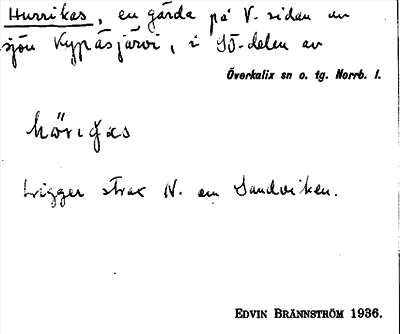 Hurrikas, en gärda på V-sidan av
sjön Kypäsjärvi, i SÖ-delen av
Överkalix sn o. tg. Norrb. l.
Ligger strax N. om Sandviken.
EDVIN BRÄNNSTRÖM 1936.